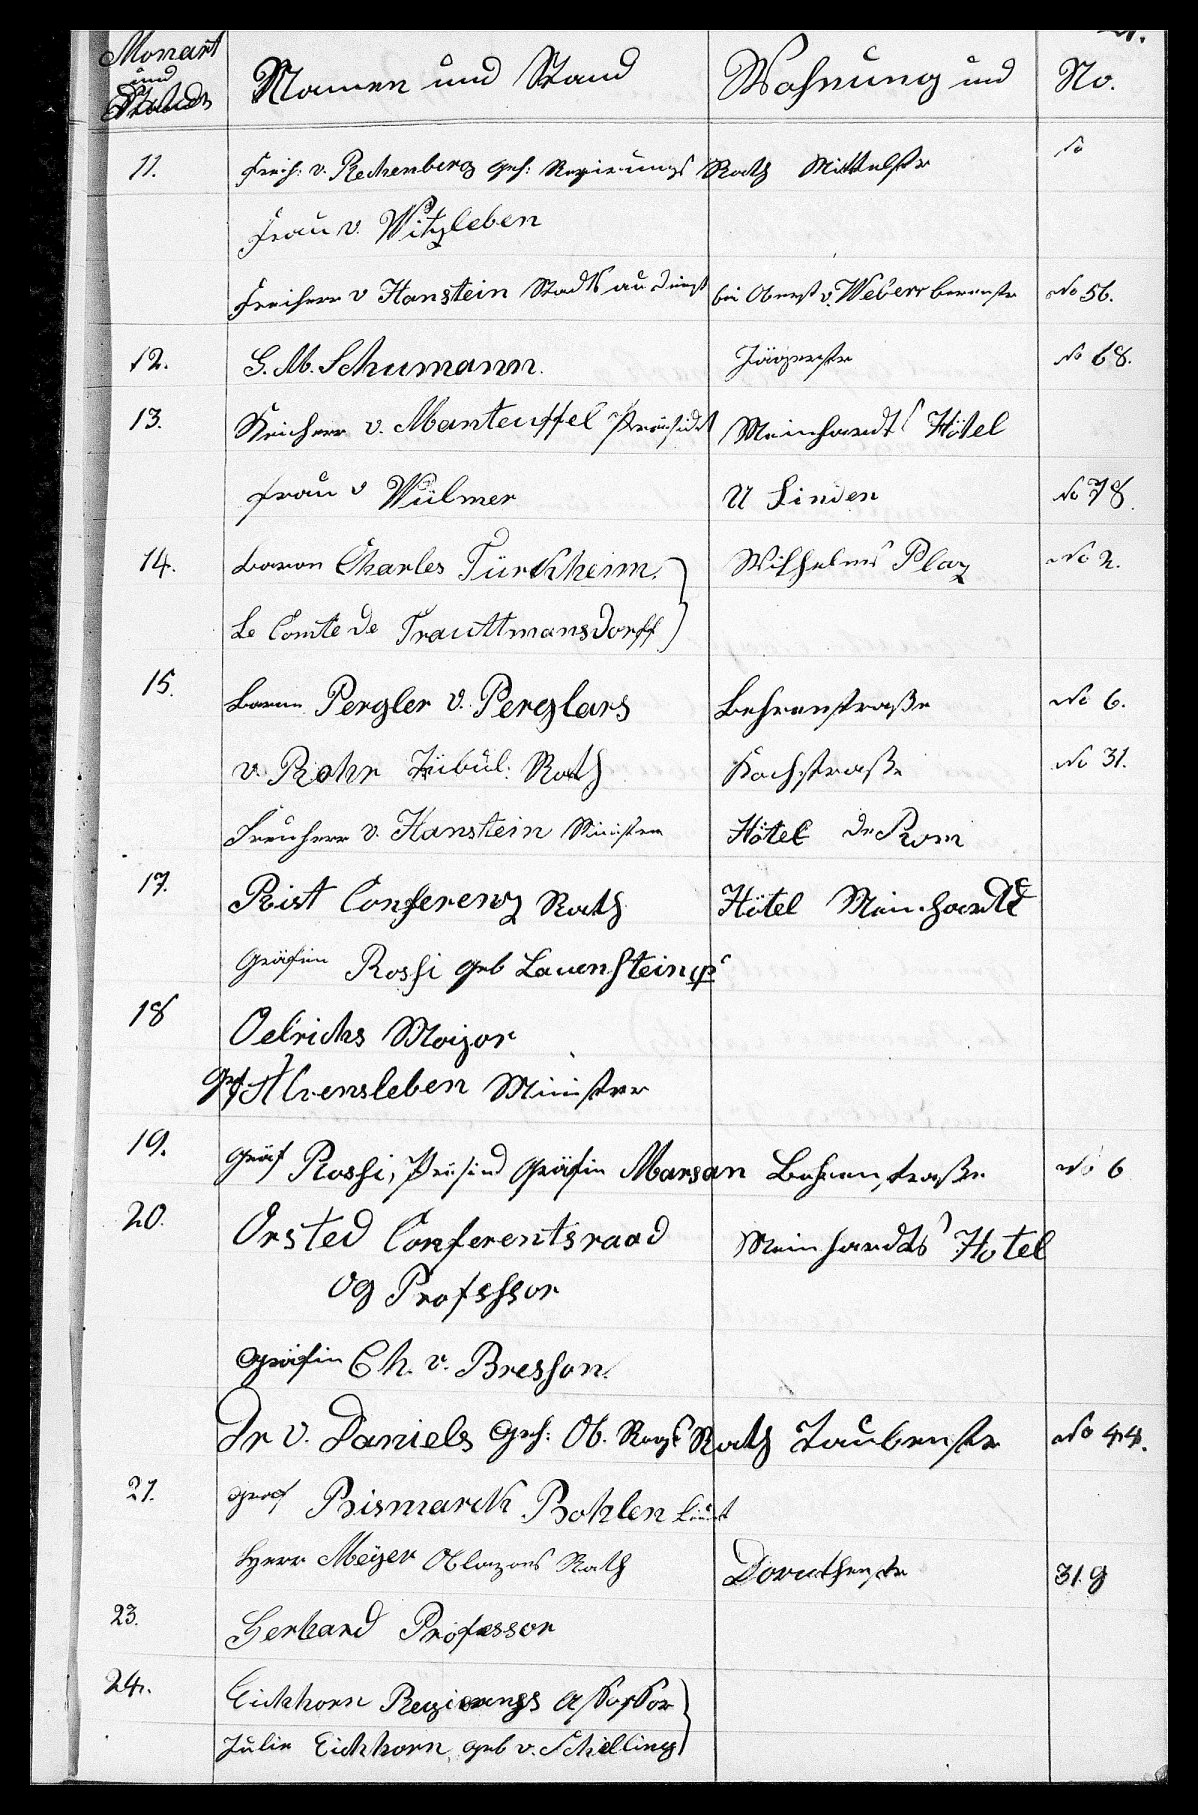 21.
Monart und Namen und Stand Wohnung und No.
11. Freih: v. Rechenberg geh: Regierungs Rath Mittelstr No
Frau v. Witzleben
Freiherr v Hanstein bei Oberst v. Weber No 56.
12. G. M. Schumann. Jägerstr No 68.
13. Freiherr v. Manteuffel Präsident Meinhardts Hôtel
Frau v Wülmer U Linden No 78.
14. Baron Charles Türckheim. Wilhelms Plaz No 2.
Le Comte de Trauttmansdorff
15. Baron Pergler v. Perglars Behrenstraße No 6.
v. Rohr Tribül: Rath Kochstraße No 31.
Freuherr v. Hanstein Minister Hôtel de Rom
17. Rist Conferenz Rath Hôtel Meinhardt
Gräfin Rossi geb Lauenstein
18 Oelrichs Major
Gf. Alvensleben Minister
19. Gräf Rossi, Gräfin Marsan Behrenstraße No 6
20. Orsted Conferentsraad Meinhardts Hotel
og Professor
Gräfin Ch. v. Bresson.
Dr v. Daniels Geh: Ob. Rath Taubenstr No 44.
21. Graf Bismarck Bohlen
Herr Meyer Rath Dorotheestr 31.g
23. Gerhard Professor
24. Eichhorn Regierungs Assessor
Julie Eichhorn, geb v. Schelling